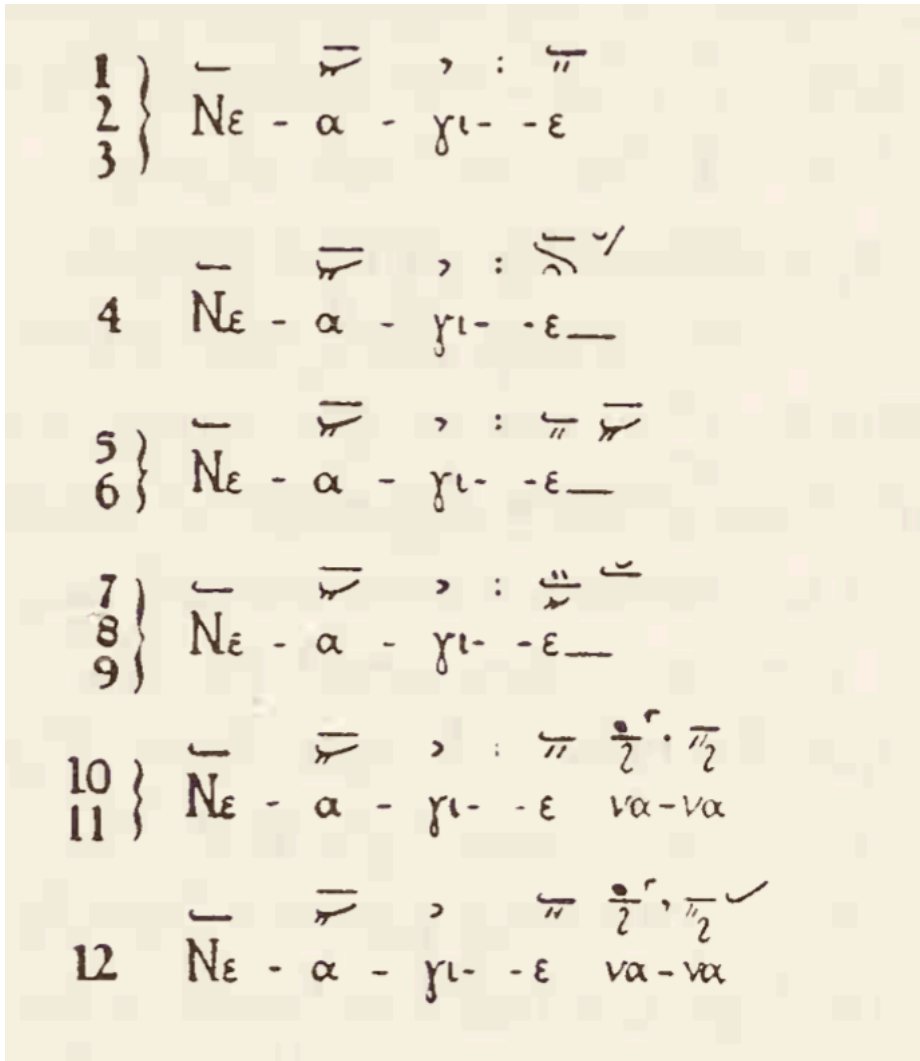 1
2
3
Νε - α - γι- -ε
4 Νε - α - γι- -ε
5
6
Νε - α - γι- -ε
7
8
9
Νε - α - γι- -ε
10
11
Νε - α - γι- -ε να-να
12 Νε - α - γι- -ε να-να